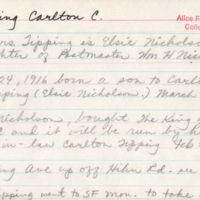 ing Carlton C.
Alice F
Colle
rs Tipping is Elsie Nicholso
ghter of Postmaster Wm H Nich
24, 1916 born a son to Carlt
pping (Elsie Nicholson.) March
Nicholson, bought The King
and it will be run by h
in-law Carlton Tipping Feb
ng Ave up off Hihn Rd.
pping went to SF mon. to take